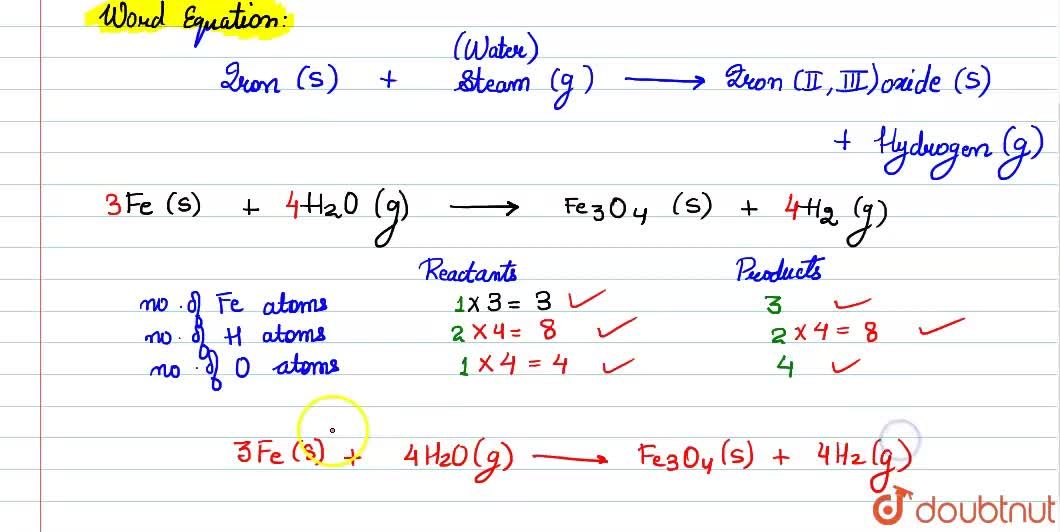 Word Equation:
(Water)
Iron (s) + Steam (g) ⟶ Iron (II, III) oxide (s)
+ Hydrogen (g)
3Fe (s) + 4H2O (g) ⟶ Fe3O4 (s) + 4H2 (g)
Reactants Products
no. of Fe atoms 1 × 3 = 3 ✓ 3 ✓
no. of H atoms 2 × 4 = 8 ✓ 2 × 4 = 8 ✓
no. of O atoms 1 × 4 = 4 ✓ 4 ✓
3Fe (s) + 4H2O (g) ⟶ Fe3O4 (s) + 4H2 (g)
doubtnut